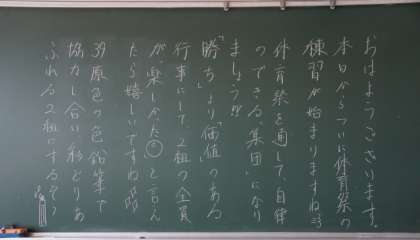 おはようございます。
本日からついに体育祭の
練習が始まりますね
体育祭を通して、自律
のできる「集団」になり
ましょう!!
「勝ち」より「価値」のある
行事にして、2組の全員
が、楽しかった と言え
たら嬉しいですね
39原色の色鉛筆で
協力し合い彩どりあ
ふれる2組にするぞ〜